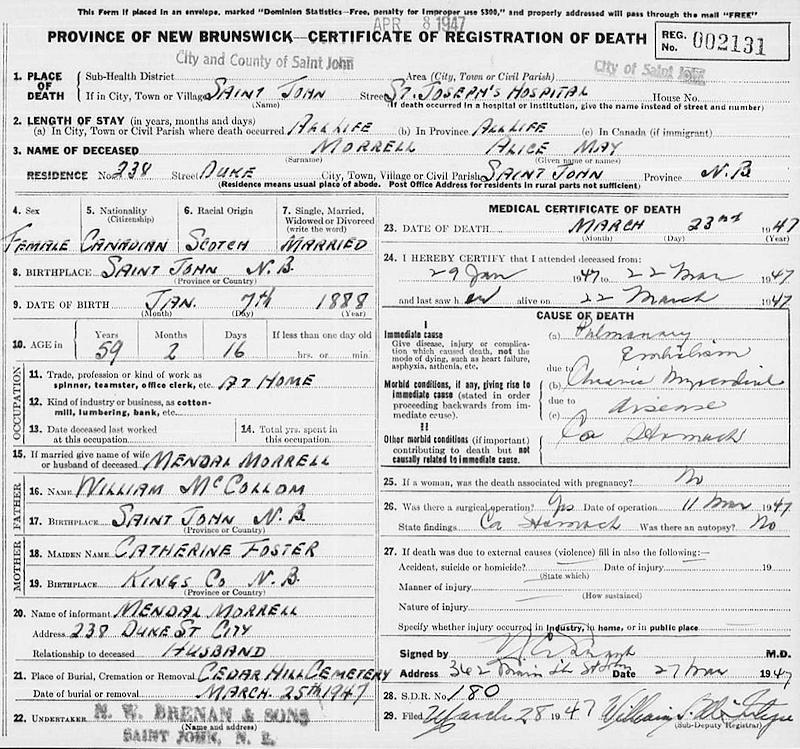 This Form if placed in an envelope, marked "Dominion Statistics—Free, penalty for improper use $300," and properly addressed will pass through the mail "FREE"
APR 8 1947
PROVINCE OF NEW BRUNSWICK—CERTIFICATE OF REGISTRATION OF DEATH
REG. No. 002131
City and County of Saint John
City of Saint John
1. PLACE OF DEATH
Sub-Health District
Area (City, Town or Civil Parish)
If in City, Town or Village SAINT JOHN Street ST. JOSEPH'S HOSPITAL House No.
(Name) (If death occurred in a hospital or institution, give the name instead of street and number)
2. LENGTH OF STAY (in years, months and days)
(a) In City, Town or Civil Parish where death occurred ALL LIFE (b) In Province ALL LIFE (c) In Canada (if immigrant)
3. NAME OF DECEASED MORRELL ALICE MAY
(Surname) (Given name or names)
RESIDENCE No. 238 Street DUKE City, Town, Village or Civil Parish SAINT JOHN Province N.B
(Residence means usual place of abode. Post Office Address for residents in rural parts not sufficient)
4. Sex
FEMALE
5. Nationality (Citizenship)
CANADIAN
6. Racial Origin
SCOTCH
7. Single, Married, Widowed or Divorced (write the word)
MARRIED
8. BIRTHPLACE SAINT JOHN N.B.
(Province or Country)
9. DATE OF BIRTH JAN. 7th 1888
(Month) (Day) (Year)
10. AGE in Years Months Days If less than one day old
59 2 16 hrs. or min.
OCCUPATION
11. Trade, profession or kind of work as spinner, teamster, office clerk, etc. AT HOME
12. Kind of industry or business, as cotton-mill, lumbering, bank, etc.
13. Date deceased last worked at this occupation
14. Total yrs. spent in this occupation
15. If married give name of wife or husband of deceased MENDAL MORRELL
FATHER
16. NAME WILLIAM McCOLLOM
17. BIRTHPLACE SAINT JOHN N.B.
(Province or Country)
MOTHER
18. MAIDEN NAME CATHERINE FOSTER
19. BIRTHPLACE KINGS CO N.B.
(Province or Country)
20. Name of informant MENDAL MORRELL
Address 238 DUKE ST CITY
Relationship to deceased HUSBAND
21. Place of Burial, Cremation or Removal CEDAR HILL CEMETERY
Date of burial or removal MARCH 25th 1947
22. UNDERTAKER N. W. BRENAN & SONS
(Name and address)
SAINT JOHN, N. B.
MEDICAL CERTIFICATE OF DEATH
23. DATE OF DEATH MARCH 23nd 1947
(Month) (Day) (Year)
24. I HEREBY CERTIFY that I attended deceased from:
29 Jan 1947 to 22 Mar 1947
and last saw her alive on 22 March 1947
CAUSE OF DEATH
I
Immediate cause
Give disease, injury or complication which caused death, not the mode of dying, such as heart failure, asphyxia, asthenia, etc.
(a) Pulmonary Embolism
due to
Morbid conditions, if any, giving rise to immediate cause (stated in order proceeding backwards from immediate cause).
(b) Chronic Myocardial
due to disease
(c)
II
Other morbid conditions (if important) contributing to death but not causally related to immediate cause.
Ca Stomach
25. If a woman, was the death associated with pregnancy? No
26. Was there a surgical operation? Yes Date of operation 11 Mar 1947
State findings Ca Stomach Was there an autopsy? No
27. If death was due to external causes (violence) fill in also the following:—
Accident, suicide or homicide? Date of injury 19
(State which)
Manner of injury
(How sustained)
Nature of injury
Specify whether injury occurred in industry, in home, or in public place
Signed by M.D.
Address 362 Main St St John Date 27 Mar 1947
28. S.D.R. No. 180
29. Filed March 28 1947 William
(Sub-Deputy Registrar)